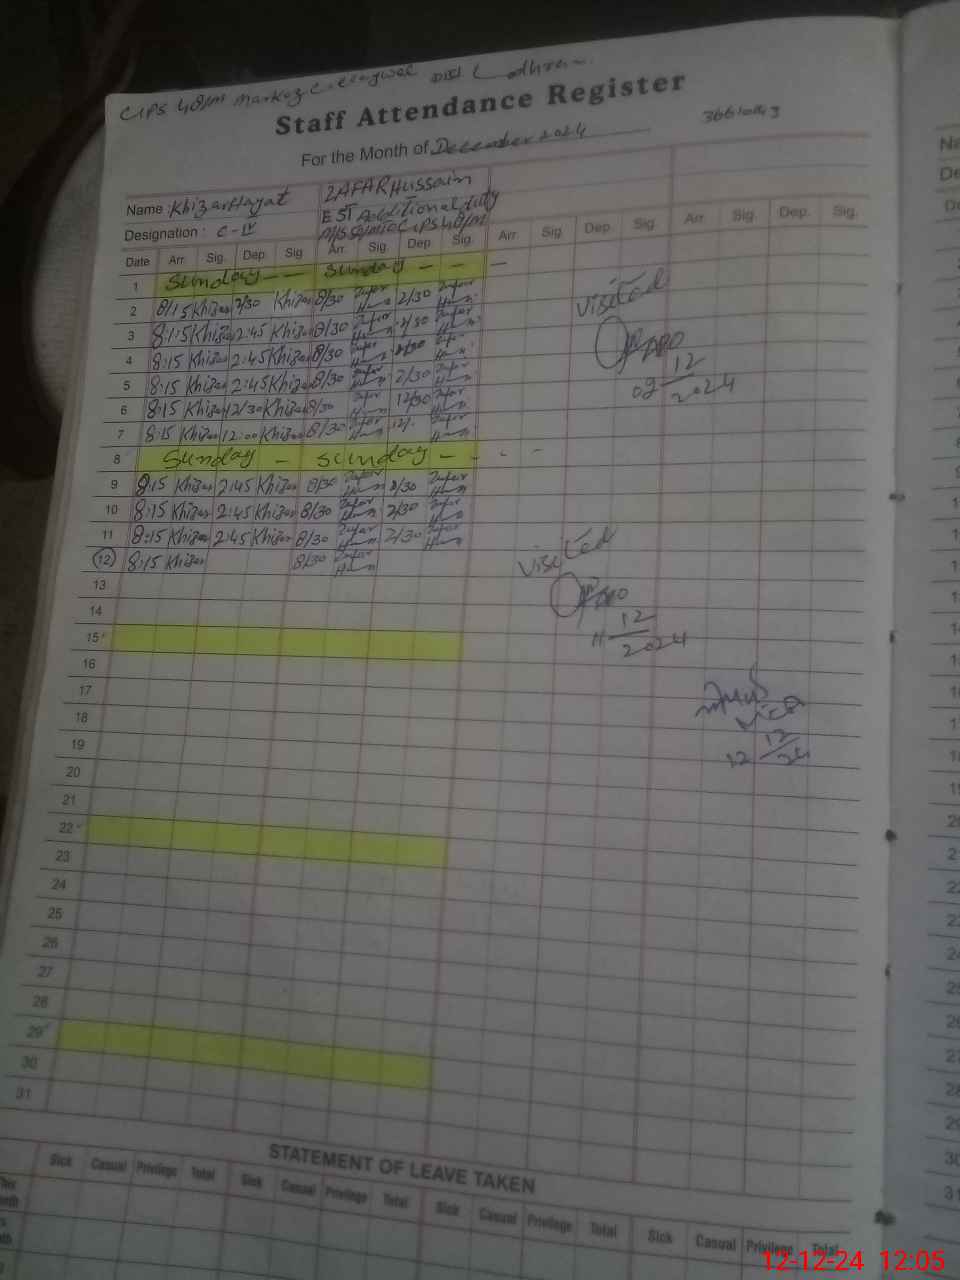 GPS 48/M Markaz Dist Lodhran
Staff Attendance Register
For the Month of December 2024
Name : Khizar Hayat ZAFAR Hussain
EST Additional duty
Designation : C-IV GPS 48/M
Date Arr. Sig. Dep. Sig. Arr. Sig. Dep. Sig. Arr. Sig. Dep. Sig. Arr. Sig. Dep. Sig.
1 Sunday - - Sunday - - -
2 8/15 Khizar 2/30 Khizar 8/30 Zafar Hussain 2/30 Zafar Hussain
3 8:15 Khizar 2:45 Khizar 8/30 Zafar Hussain 2/30 Zafar Hussain
4 8:15 Khizar 2:45 Khizar 8/30 Zafar Hussain 2/30 Zafar Hussain
5 8:15 Khizar 2:45 Khizar 8/30 Zafar Hussain 2/30 Zafar Hussain
6 8:15 Khizar 12/30 Khizar 8/30 Zafar Hussain 12/30 Zafar Hussain
7 8:15 Khizar 12:00 Khizar 8/30 Zafar Hussain 12/. Zafar Hussain
8 Sunday - Sunday - - - -
9 8:15 Khizar 2:45 Khizar 8/30 Zafar Hussain 2/30 Zafar Hussain
10 8:15 Khizar 2:45 Khizar 8/30 Zafar Hussain 2/30 Zafar Hussain
11 8:15 Khizar 2:45 Khizar 8/30 Zafar Hussain 2/30 Zafar Hussain
12 8:15 Khizar 8/30 Zafar Hussain
13
14
15
16
17
18
19
20
21
22
23
24
25
26
27
28
29
30
31
Visited
09 12
2024
Visited
11 12
2024
12 12
24
STATEMENT OF LEAVE TAKEN
Sick Casual Privilege Total Sick Casual Privilege Total Sick Casual Privilege Total Sick Casual Privilege Total
12-12-24 12:05